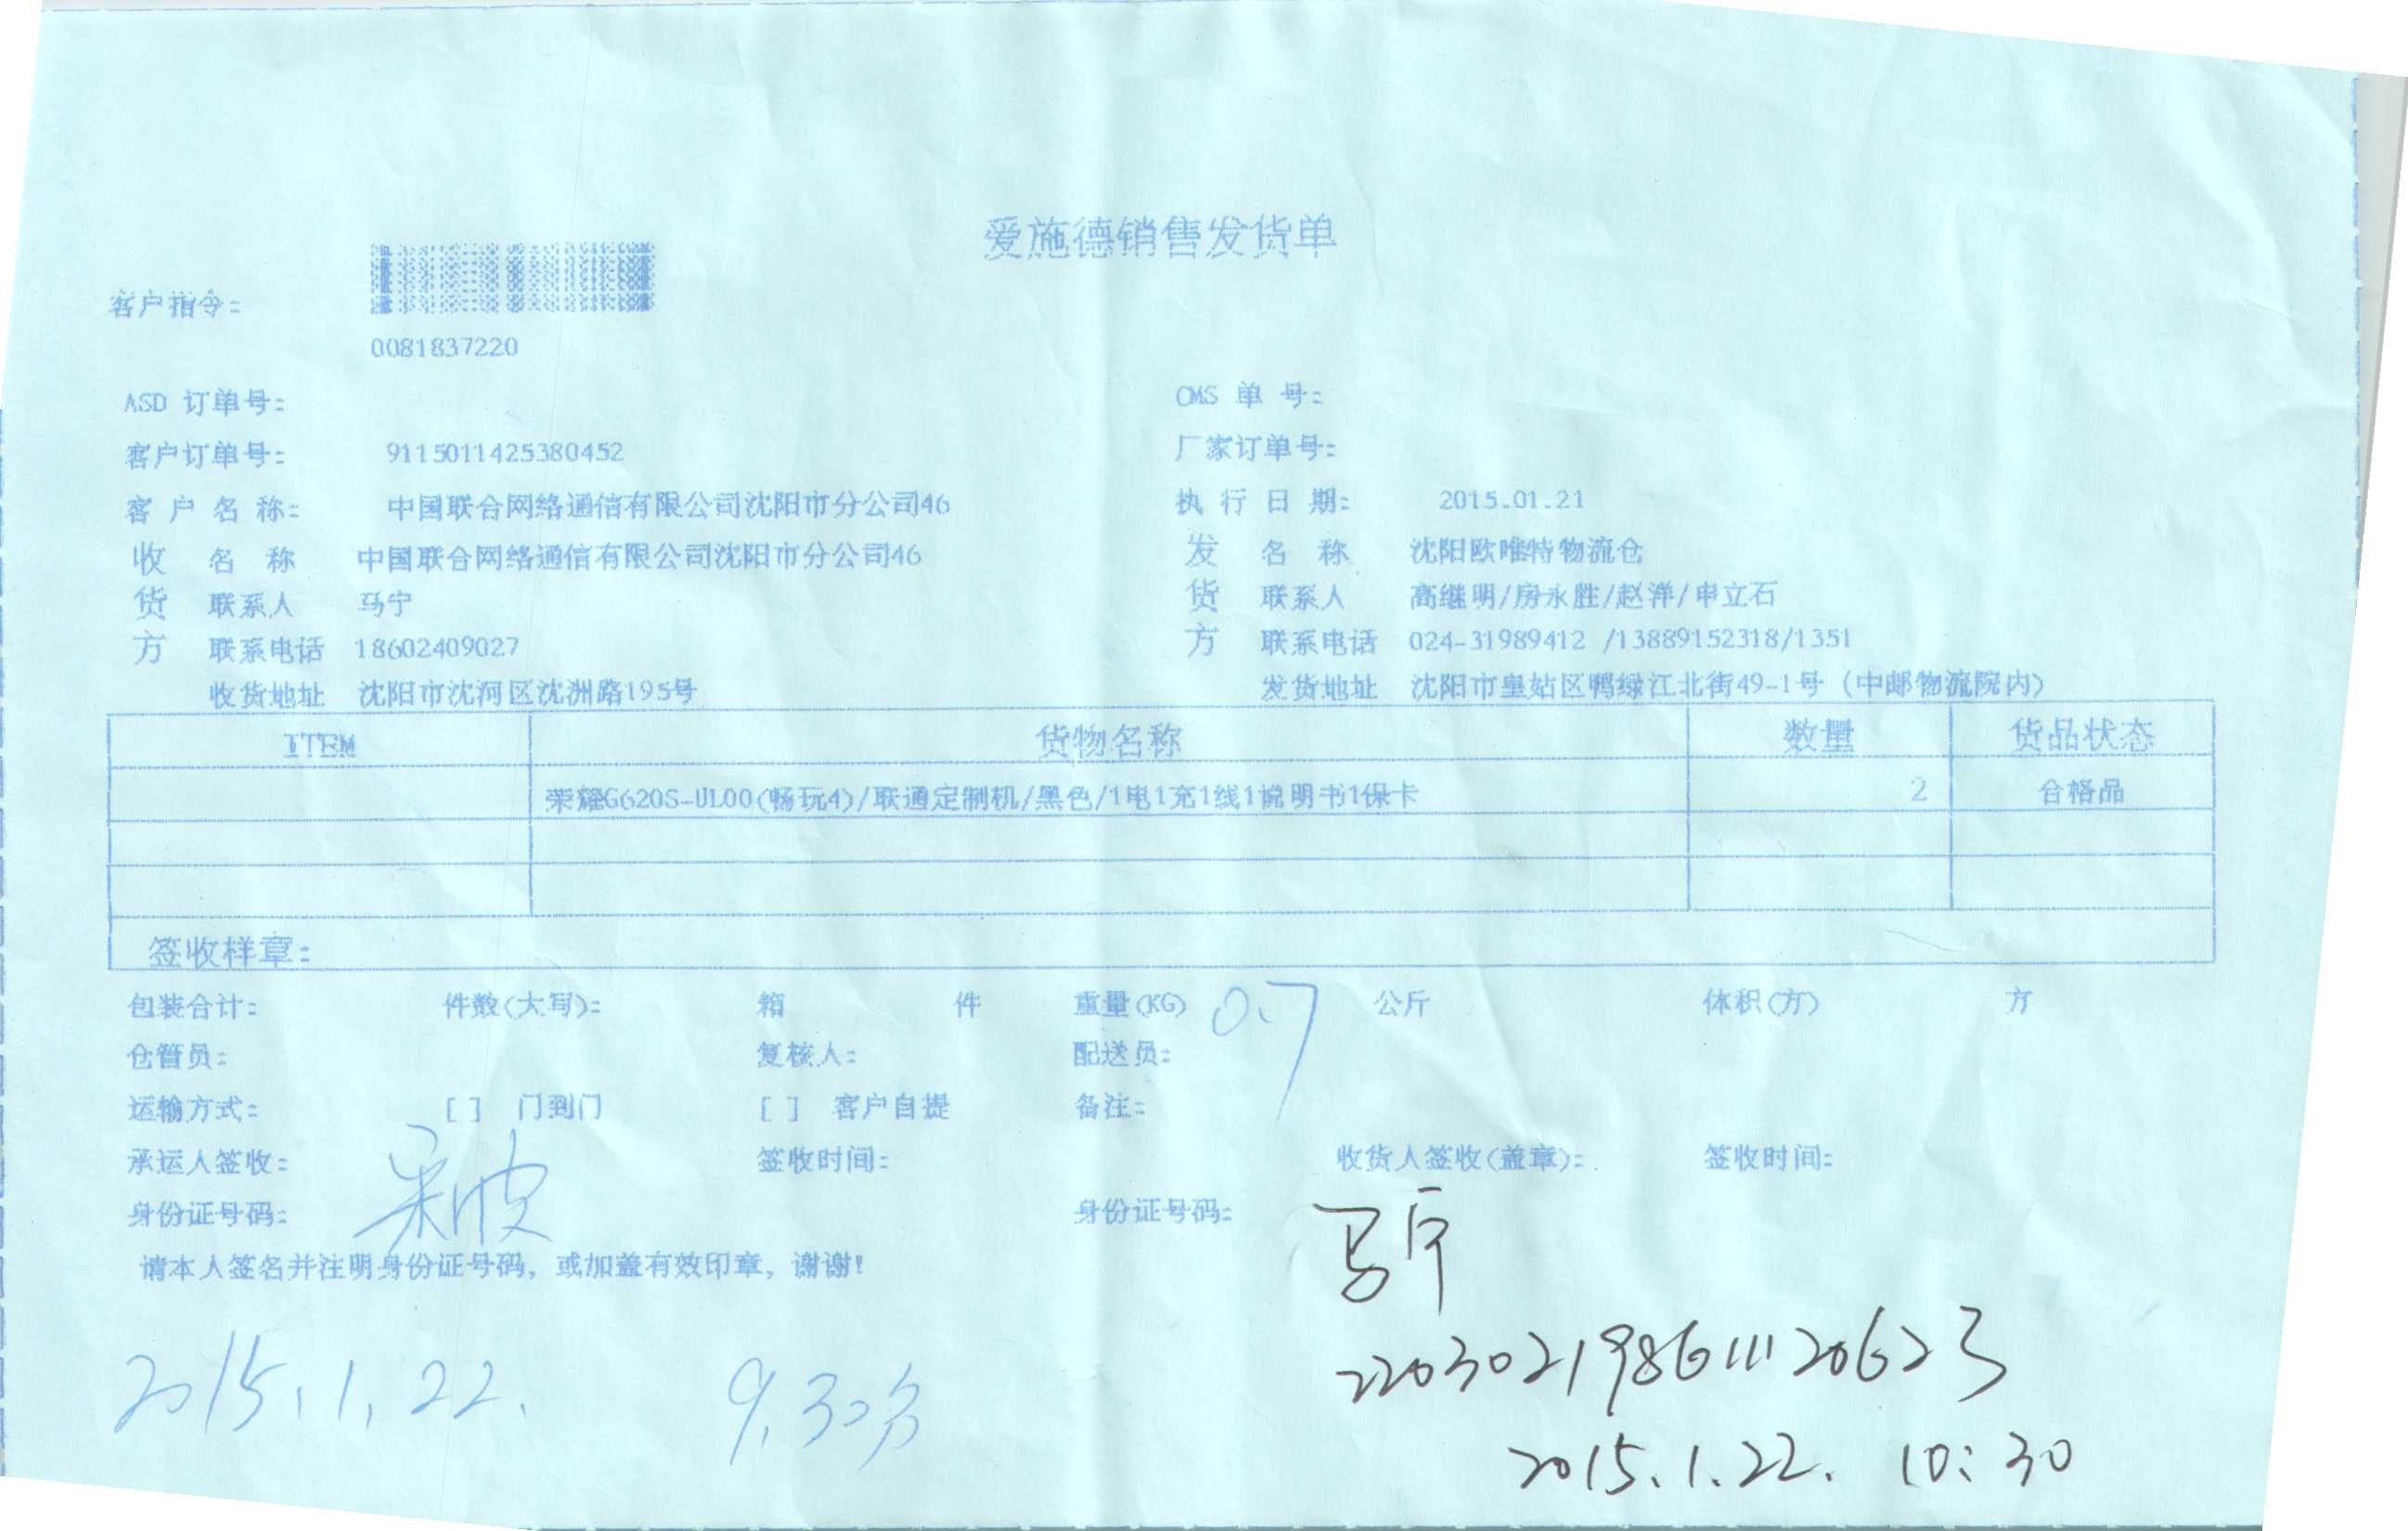 爱施德销售发货单
客户指令:
0081837220
ASD 订单号: CMS 单 号:
客户订单号: 9115011425380452 厂家订单号:
客 户 名 称: 中国联合网络通信有限公司沈阳市分公司46 执 行 日 期: 2015.01.21
收 名 称 中国联合网络通信有限公司沈阳市分公司46 发 名 称 沈阳欧唯特物流仓
货 联系人 马宁 货 联系人 高继明/房永胜/赵洋/申立石
方 联系电话 18602409027 方 联系电话 024-31989412 /13889152318/1351
收货地址 沈阳市沈河区沈洲路195号 发货地址 沈阳市皇姑区鸭绿江北街49-1号 (中邮物流院内)
ITEM 货物名称 数量 货品状态
荣耀G620S-UL00(畅玩4)/联通定制机/黑色/1电1充1线1说明书1保卡 2 合格品
签收样章:
包装合计: 件数(大写): 箱 件 重量(KG) 0.7 公斤 体积(方) 方
仓管员: 复核人: 配送员:
运输方式: [ ] 门到门 [ ] 客户自提 备注:
承运人签收: 签收时间: 收货人签收(盖章): 签收时间:
身份证号码: 身份证号码: 马宁
请本人签名并注明身份证号码, 或加盖有效印章, 谢谢!
220302198611120623
2015.1.22. 9.30分
2015.1.22. 10:30